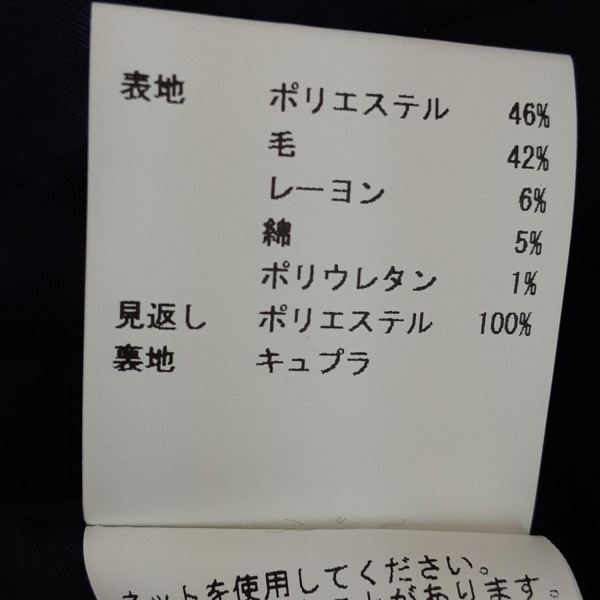 表地 ポリエステル 46%
毛 42%
レーヨン 6%
綿 5%
ポリウレタン 1%
見返し ポリエステル 100%
裏地 キュプラ
ネットを使用してください。
ことがあります。